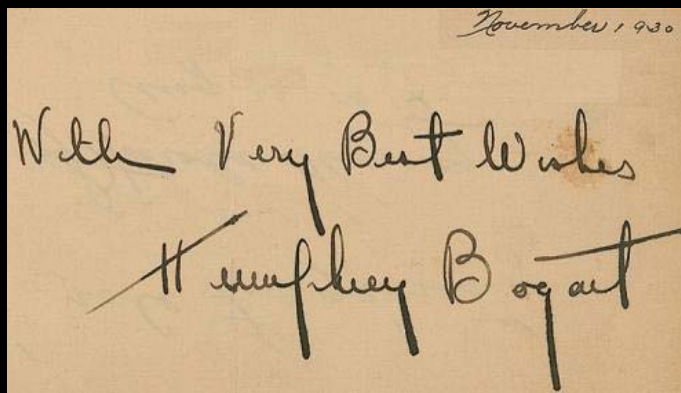 November, 1930
With Very Best Wishes
Humphrey Bogart